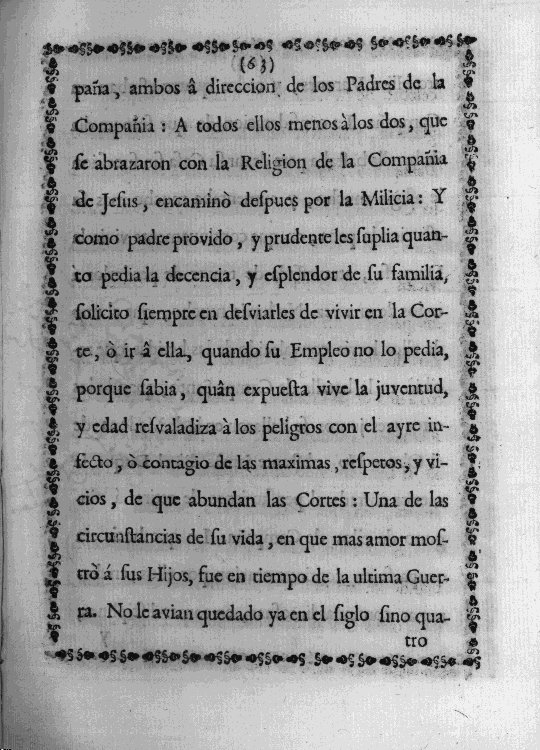 (63)
pañia, ambos â direccion de los Padres de la
Compañia : A todos ellos menos à los dos, que
ſe abrazaron con la Religion de la Compañia
de Jeſus, encaminò deſpues por la Milicia: Y
como padre provido, y prudente les ſuplia quan-
to pedia la decencia, y eſplendor de ſu familia,
ſolicito ſiempre en deſviarles de vivir en la Cor-
te, ò ir â ella, quando ſu Empleo no lo pedia,
porque ſabia, quân expueſta vive la juventud,
y edad reſvaladiza à los peligros con el ayre in-
fecto, ò contagio de las maximas, reſpetos, y vi-
cios, de que abundan las Cortes : Una de las
circunſtancias de ſu vida, en que mas amor moſ-
trò á ſus Hijos, fue en tiempo de la ultima Guer-
ra. No le avian quedado ya en el ſiglo ſino qua-
tro